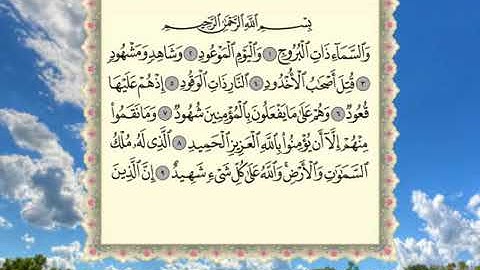 بِسْمِ اللَّهِ الرَّحْمَٰنِ الرَّحِيمِ
وَالسَّمَاءِ ذَاتِ الْبُرُوجِ ١ وَالْيَوْمِ الْمَوْعُودِ ٢ وَشَاهِدٍ وَمَشْهُودٍ
٣ قُتِلَ أَصْحَابُ الْأُخْدُودِ ٤ النَّارِ ذَاتِ الْوَقُودِ ٥ إِذْ هُمْ عَلَيْهَا
قُعُودٌ ٦ وَهُمْ عَلَىٰ مَا يَفْعَلُونَ بِالْمُؤْمِنِينَ شُهُودٌ ٧ وَمَا نَقَمُوا
مِنْهُمْ إِلَّا أَن يُؤْمِنُوا بِاللَّهِ الْعَزِيزِ الْحَمِيدِ ٨ الَّذِي لَهُ مُلْكُ
السَّمَٰوَٰتِ وَالْأَرْضِ وَاللَّهُ عَلَىٰ كُلِّ شَيْءٍ شَهِيدٌ ٩ إِنَّ الَّذِينَ